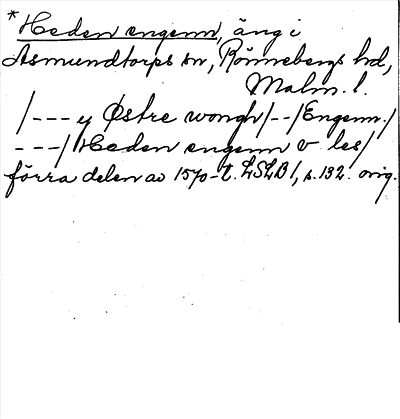 * Heden engenn, äng i
Asmundtorps sn, Rönnebergs hd,
Malm. l.
/--- y Østre wongh/--/Engenn./
---/ Heden engenn v les/
förra delen av 1570-t. LSLB 1, s. 132. orig.